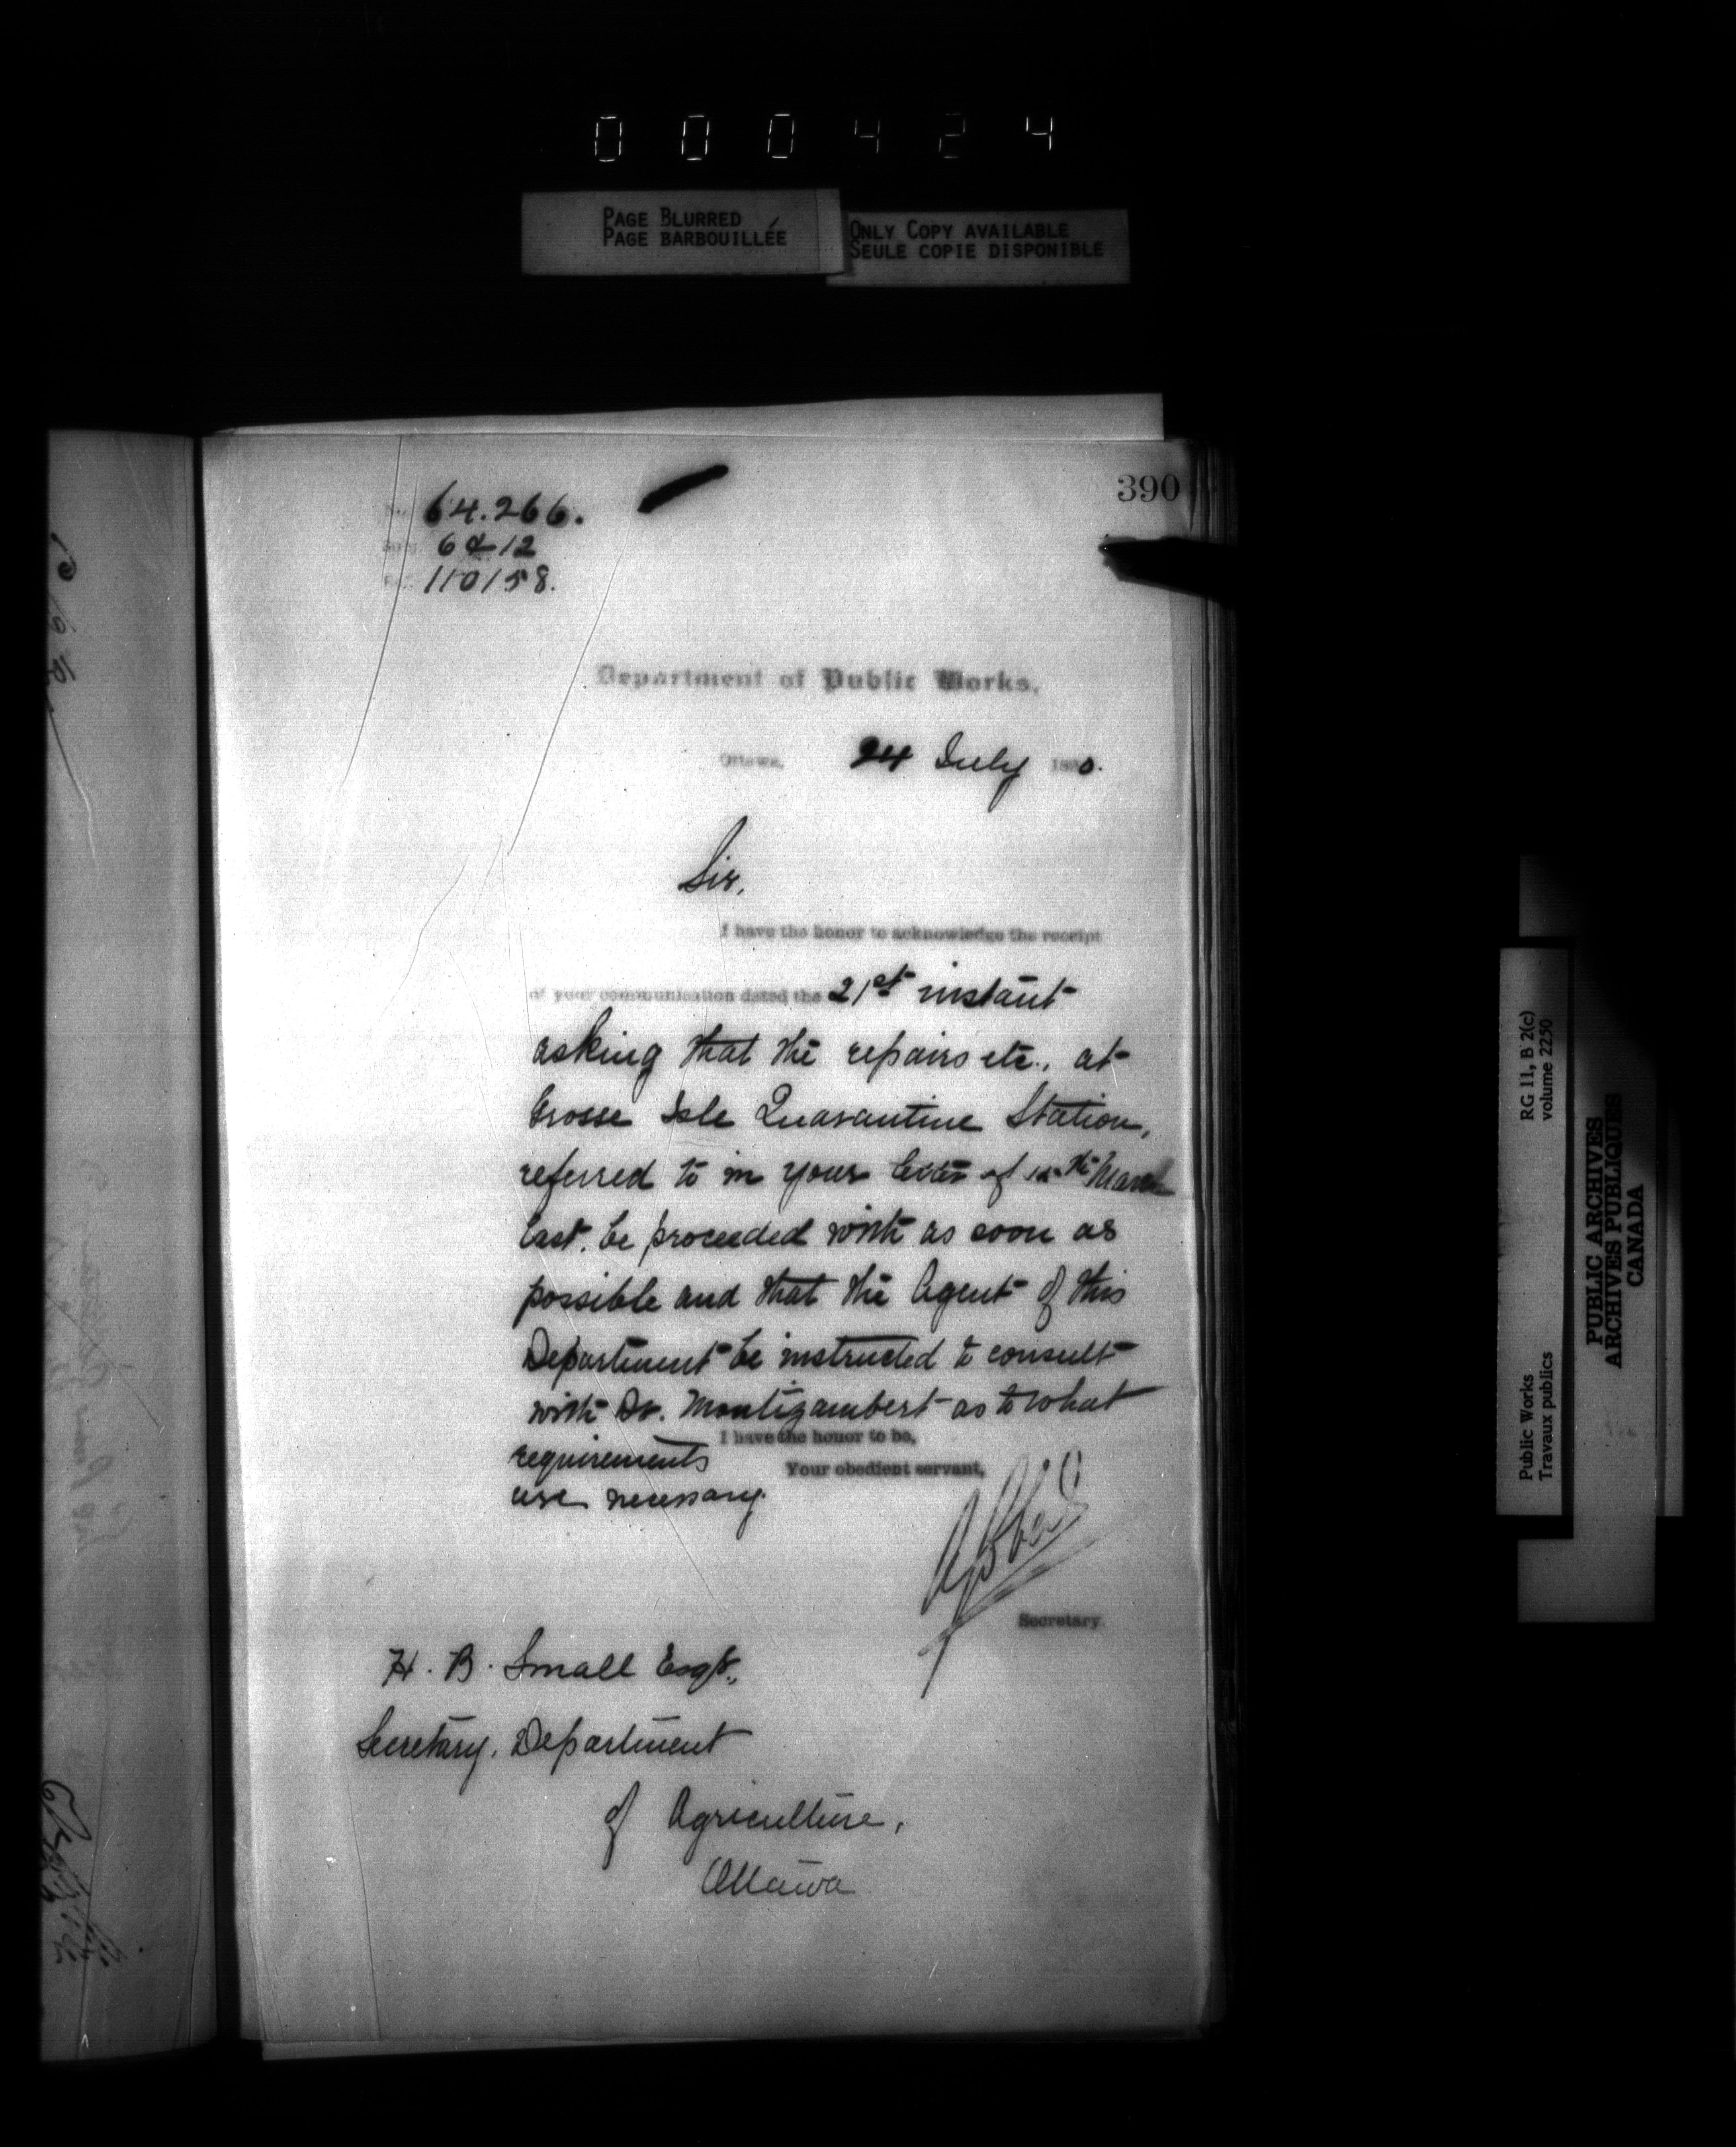 000424
PAGE BLURRED
PAGE BARBOUILLÉE
ONLY COPY AVAILABLE
SEULE COPIE DISPONIBLE
390
64.266.
110158.
Department of Public Works.
Ottawa, 24 July 1890.
Sir,
I have the honor to acknowledge the receipt
of your communication dated the 21st instant
asking that the repairs etc., at
Grosse Isle Quarantine Station,
referred to in your letter of March
last, be proceeded with as soon as
possible and that the Agent of this
Department be instructed to consult
with Dr. Montizambert as to what
requirements
are necessary.
I have the honor to be,
Your obedient servant,
Secretary.
H. B. Small Esqr.,
Secretary, Department
of Agriculture,
Ottawa
Public Works
Travaux publics
RG 11, B 2(c)
volume 2250
PUBLIC ARCHIVES
ARCHIVES PUBLIQUES
CANADA